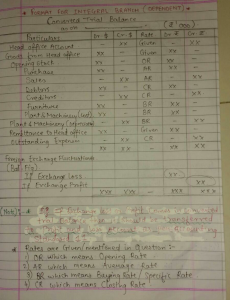 * FORMAT FOR INTEGRAL BRANCH (DEPENDENT)
Converted Trial Balance
(₹ '000)
Particulars Dr. $ Cr. $ Rate Dr. ₹ Cr. ₹
Head office Account - xx Given - xx
Goods from Head office xx - Given xx -
Opening Stock xx - OR xx -
Purchase xx - AR xx -
Sales - xx AR - xx
Debtors xx - CR xx -
Creditors - xx CR - xx
Furniture xx - BR xx -
Plant & Machinery xx - BR xx -
Plant & Machinery - xx BR - xx
Remittance to Head office xx - Given xx -
Outstanding Expense - xx CR - xx
Foreign Exchange Fluctuations
(Bal. Fig)
If Exchange Loss xx -
If Exchange Profit - xx
xxx xxx - xxx xxx
Note:-
* Rates are Given/mentioned in Question:-
1) OR which means Opening Rate
2) AR which means Average Rate
3) BR which means Buying Rate / Specific Rate
4) CR which means Closing Rate